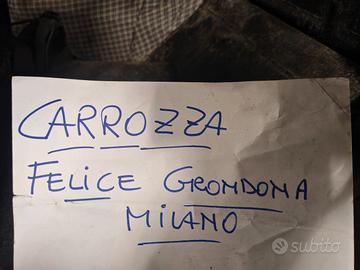 CARROZZA
FELICE GRONDONA
MILANO
subito